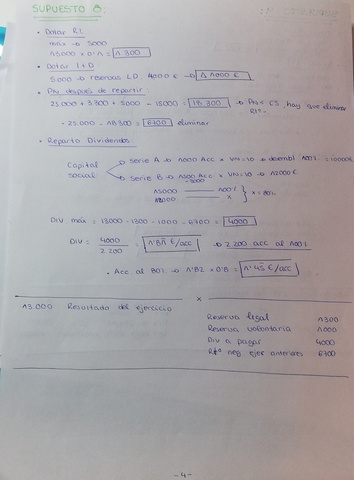 SUPUESTO 8:
• Dotar RL
max → 5000
13000 × 0'1 = 1.300
• Dotar I+D
5.000 → reservas LD 4000 € → Δ 1000 €
• PN después de repartir
25000 + 3.300 + 5000 - 15000 = 18.300 → PN < CS, hay que eliminar
Rtº-
- 25000 - 18300 = 6700 eliminar
• Reparto Dividendos
Capital social
serie A → 1000 Acc × VN=10 → desembl 100% = 10000€
serie B → 1500 Acc × VN=10 → 12000 €
15000
15000 ——— 100%
12000 ——— x
x = 80%
Div máx = 13000 - 1300 - 1000 - 6700 = 4000
Div = 4000 / 2.200 = 1'81 €/acc → 2.200 acc al 100%
• Acc al 80% → 1'82 × 0'8 = 1'45 €/acc
x
13.000 Resultado del ejercicio
Reserva legal 1300
Reserva voluntaria 1000
Div a pagar 4000
Rtº neg ejer anteriores 6700
-4-